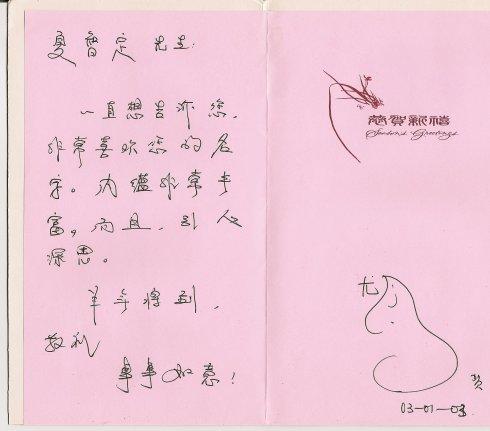 夏鲁定 先生:
一直想告诉您,
非常喜欢您的名
字。内蕴非常丰
富,而且,引人
深思。
羊年将到,
敬祝
事事如意!
恭賀新禧
Season's Greetings
尤
03-01-03